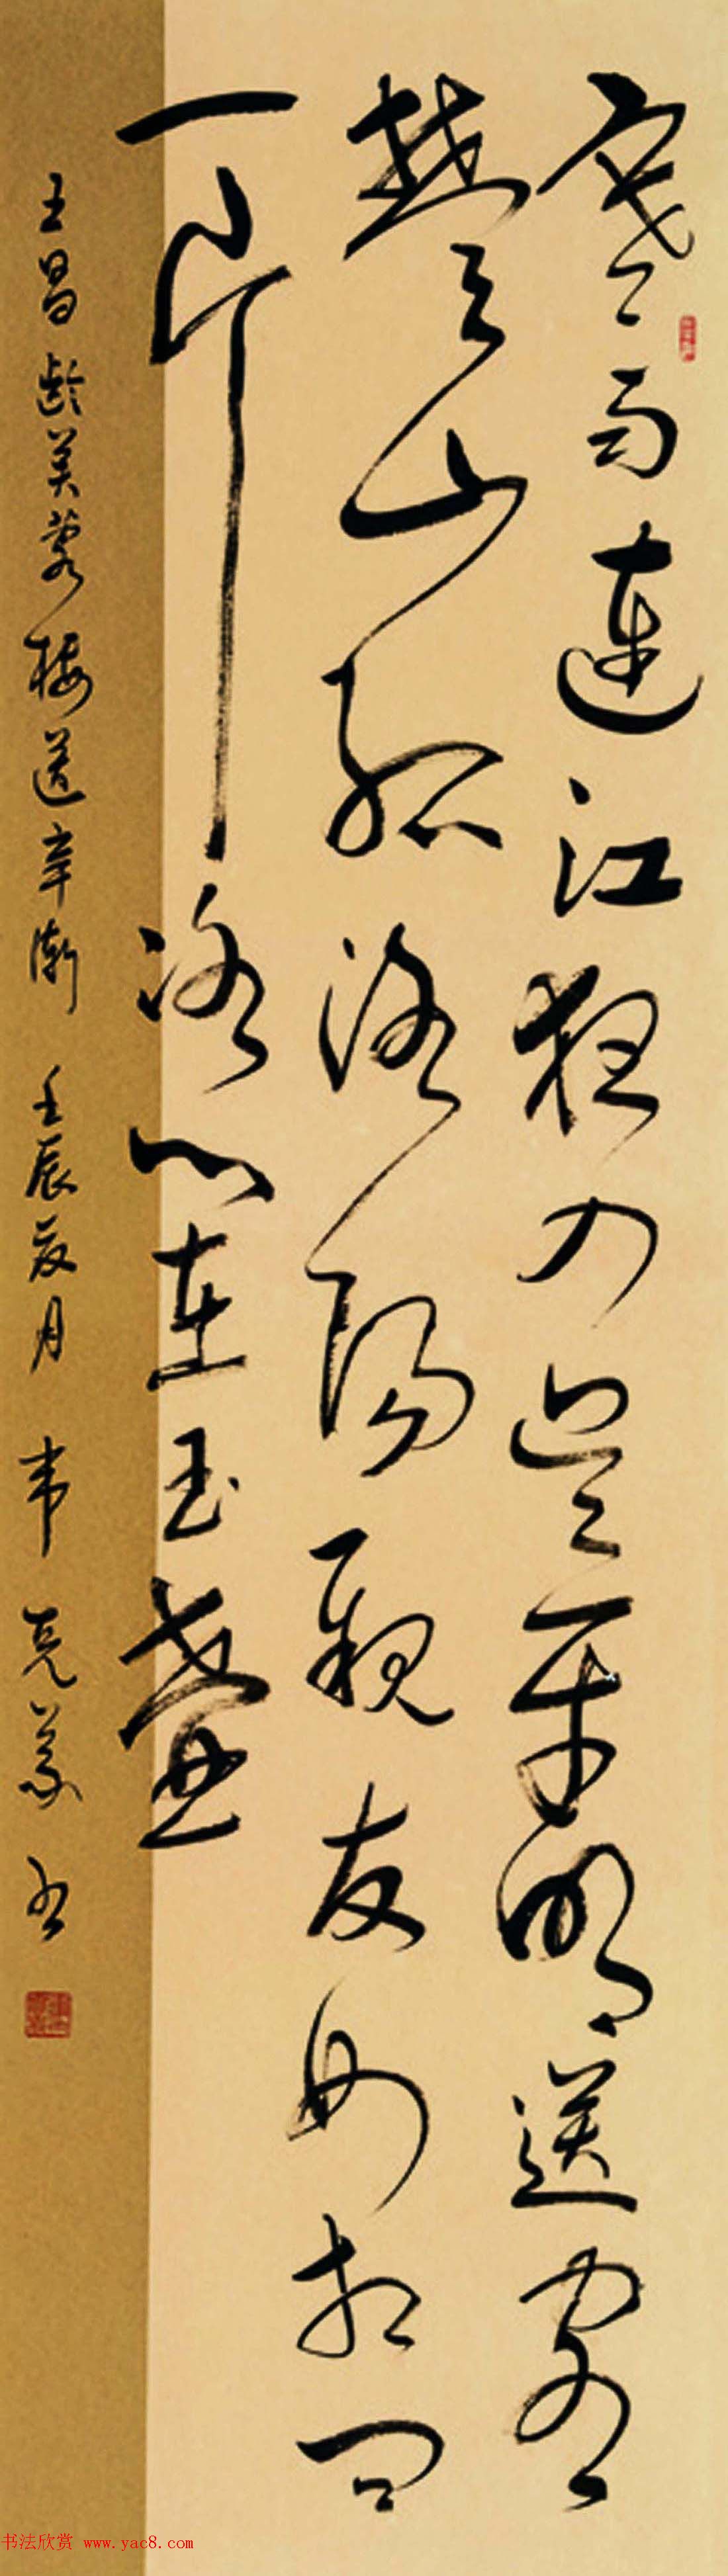 寒雨連江夜入吴平明送客
楚山孤洛陽親友如相问
一片冰心在玉壺
王昌龄芙蓉楼送辛渐 壬辰夏月 韦克義书
书法欣赏 www.yac8.com